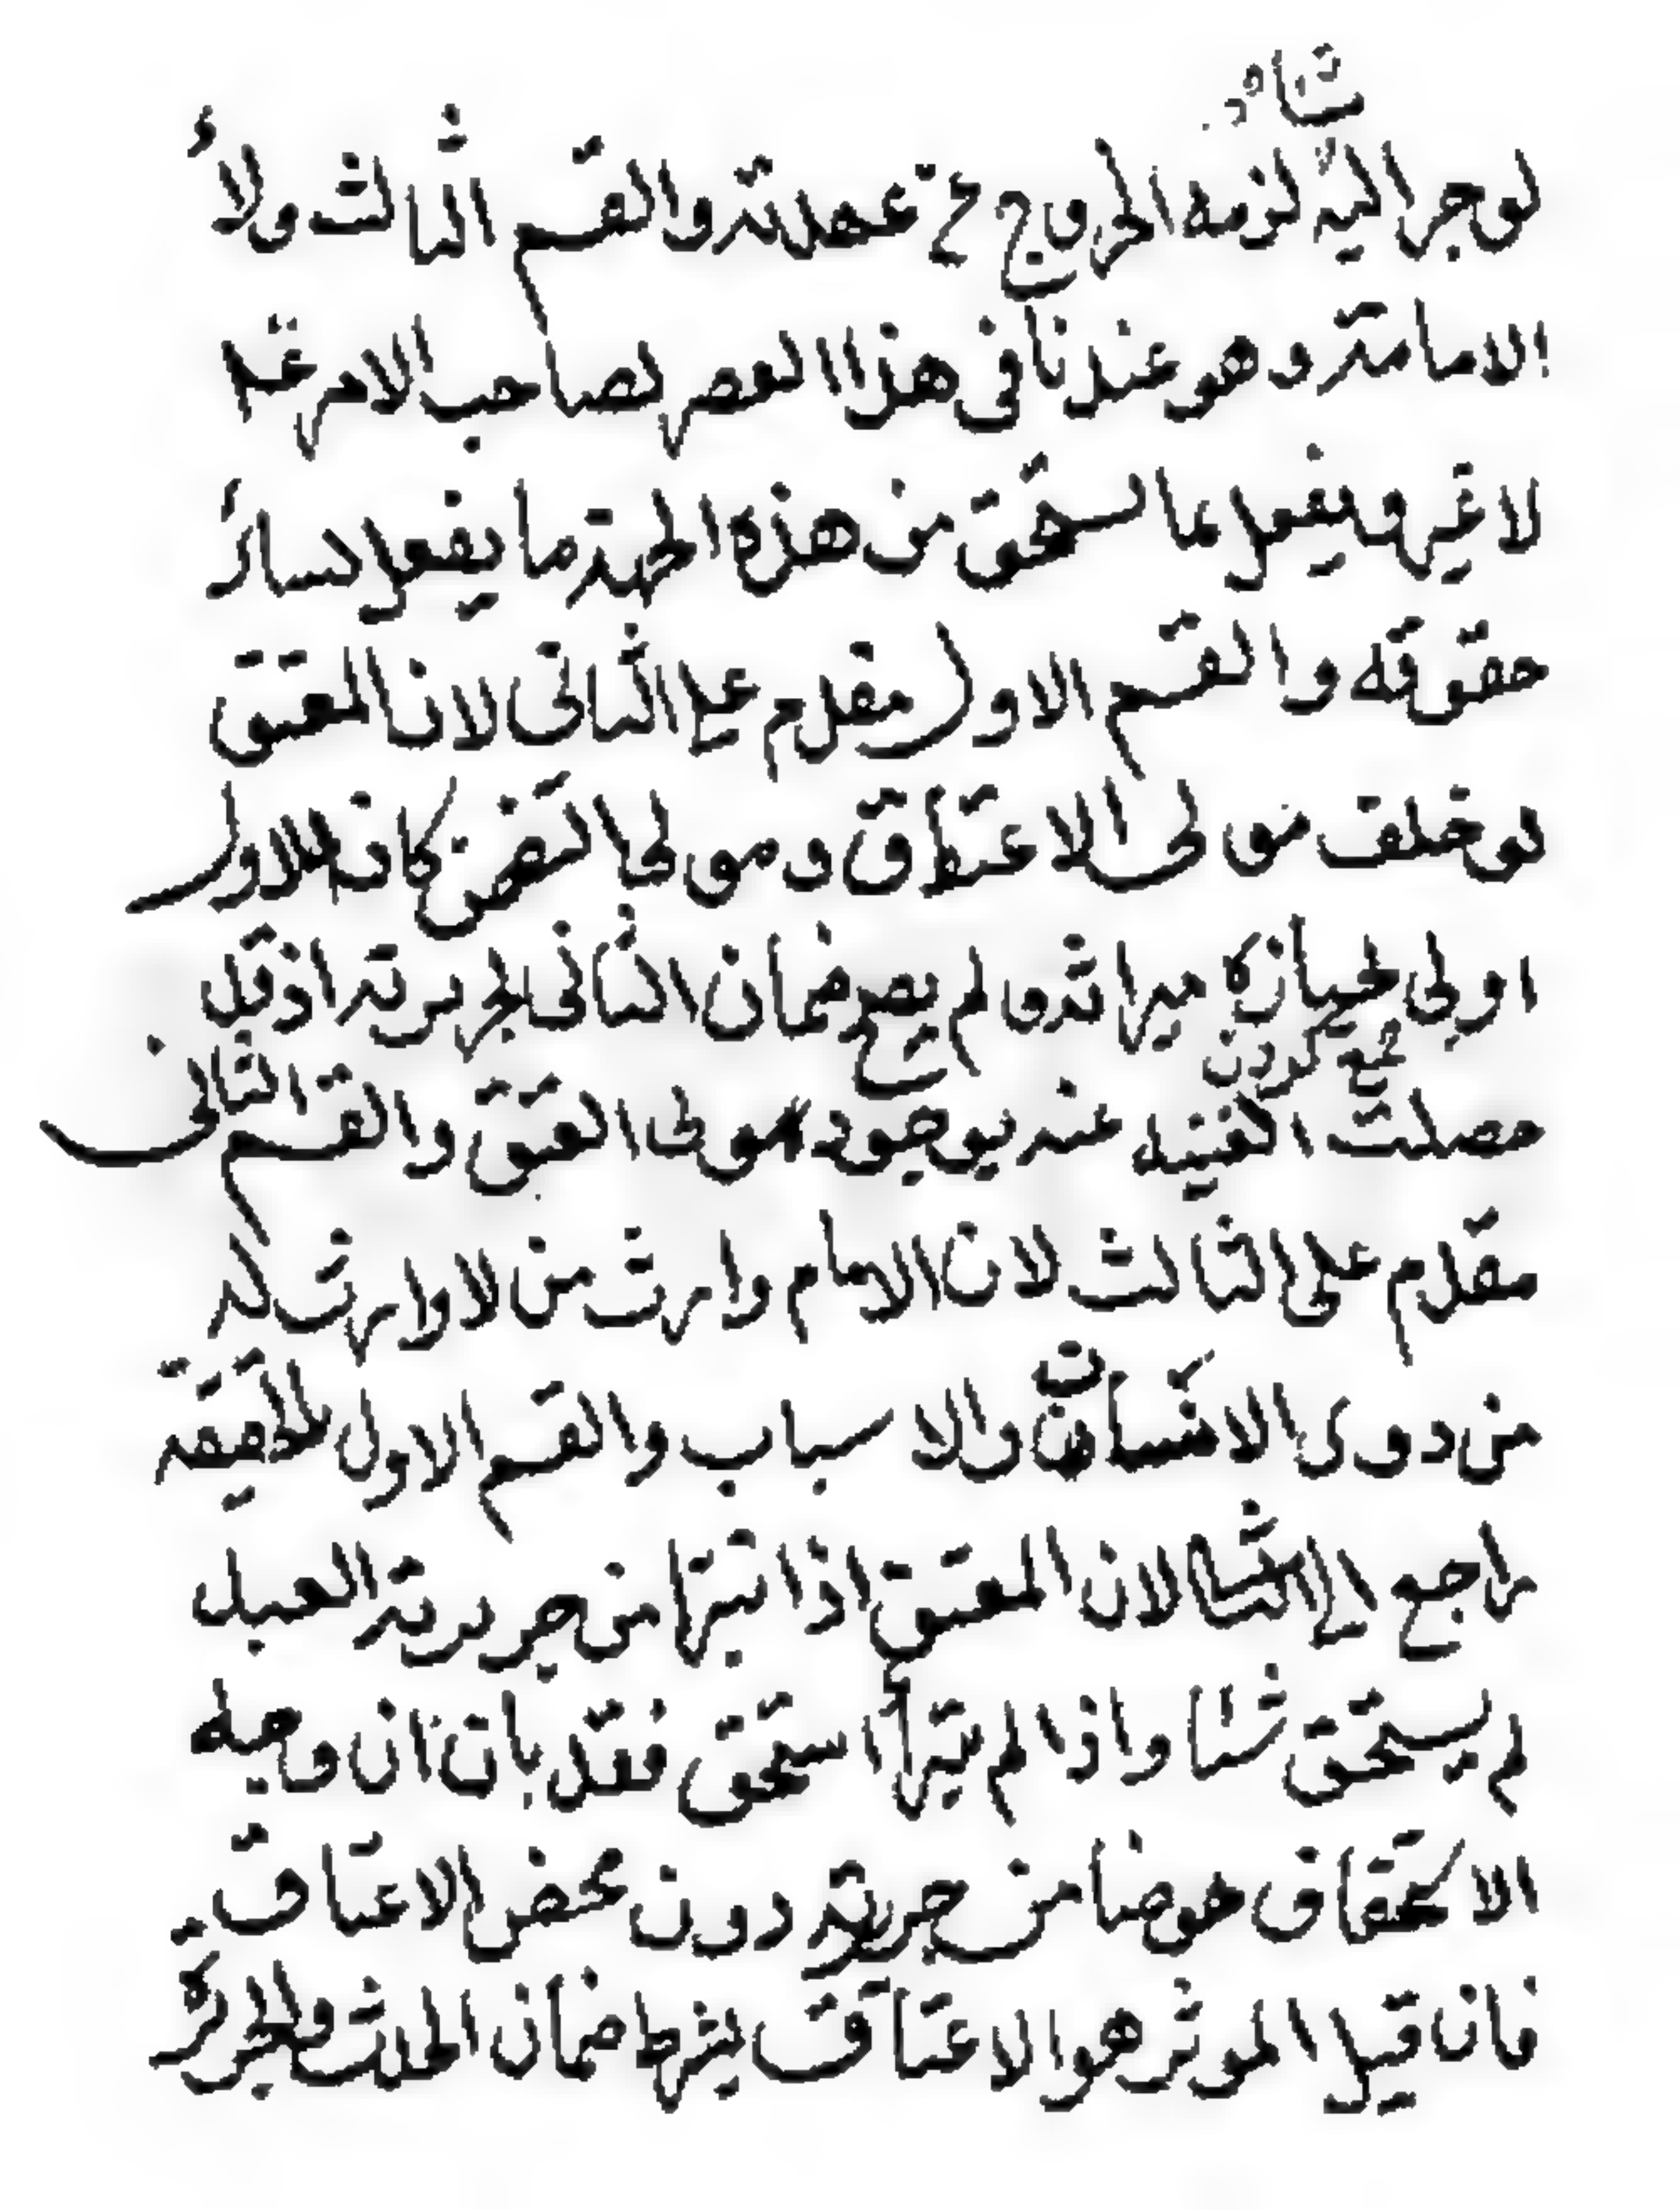 لو جر اليه لزمه الخروج ع عهدته والقسم الثالث ولاء
الامامة وهو عندنا فى هذا العصر لصاحب الامر عم
لا غير ويفعل بما يستحق من هذه الجهة ما يفعل بسائر
حقوقه والقسم الاول مقدم على الثانى لان المعتق
لو خلف مولى الاعتاق ومولى التضمن كان الاول
اولى لحيازة ميراثه ولم يصح ضمان الثانى لجريرته اذ قد
جمع كردن
حصلت الغنيه عنه بوجود مولى العتق والقسم الثانى
مقدم على الثالث لان الامام وارث من لا وارث له
من ذوى الانساب والاسباب والقسم الاول للحقيقة
راجع الى الثانى لان المعتق اذا تبرا من جريرة العبد
لم يستحق شيئا واذا لم يتبرأ استحق فقد بان ان وجه
الاستحقاق هو ضمان جريرته دون محض الاعتاق
فان قيل الموثر هو الاعتاق بشرط ضمان الحدث والجريرة